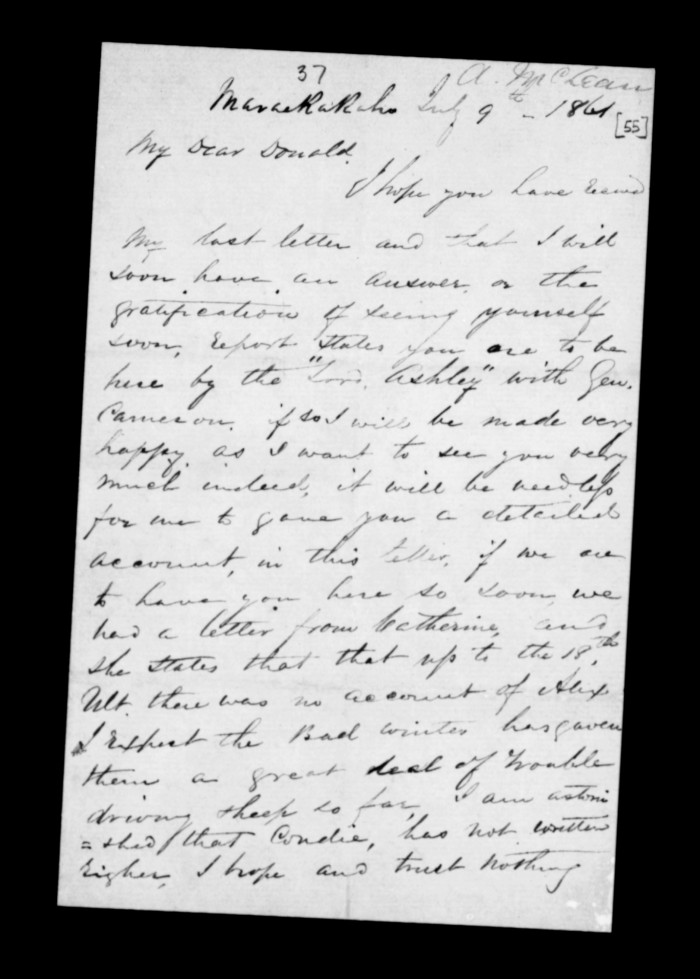 37
A. McLean
Maraekakaho July 9th - 1861
[55]
My Dear Donald.
I hope you have
My last letter and that I will
soon have an answer, or the
gratification of seeing yourself
soon, report states you are to be
here by the "Lord Ashley" with Gen.
Cameron, if so I will be made very
happy as I want to see you very
much indeed, it will be needless
for me to gave you a detailed
account, in this letter, if we are
to have you here so soon, we
had a letter from Catherine, and
she states that that up to the 18th,
Ult. there was no account of Alex
I the Bad winter has gaven
them a great deal of trouble
driving sheep so far, I am astoni
=shed that Condie, has not written
I hope and trust nothing